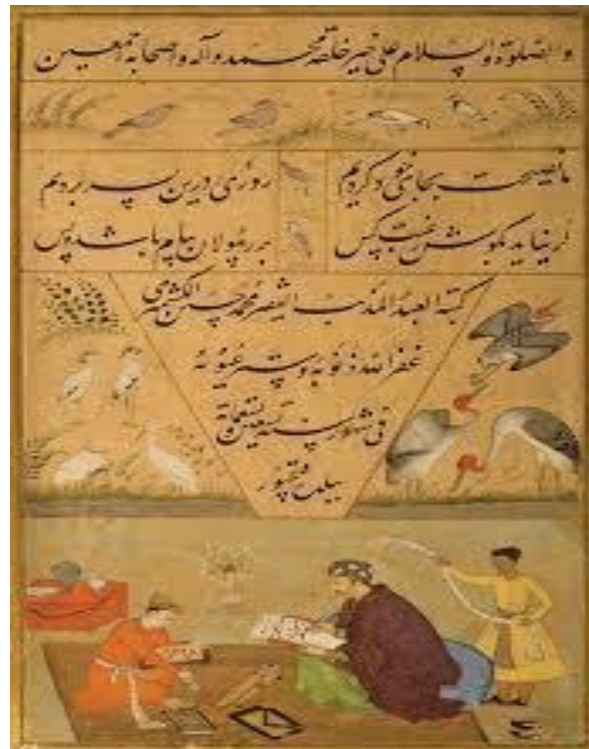 والصلوة والسلام علی خیر خلقه محمد وآله واصحابه اجمعین
ما نصیحت بجای خود کردیم روزی درین بسر بردیم
گر نیاید بگوش رغبت کس بر رسولان پیام باشد و بس
کتبه العبد المذنب الفقیر محمد حسین الکشمیری
غفر الله ذنوبه وستر عیوبه
فی شهور سنه تسعین وتسعمایة
فتحپور